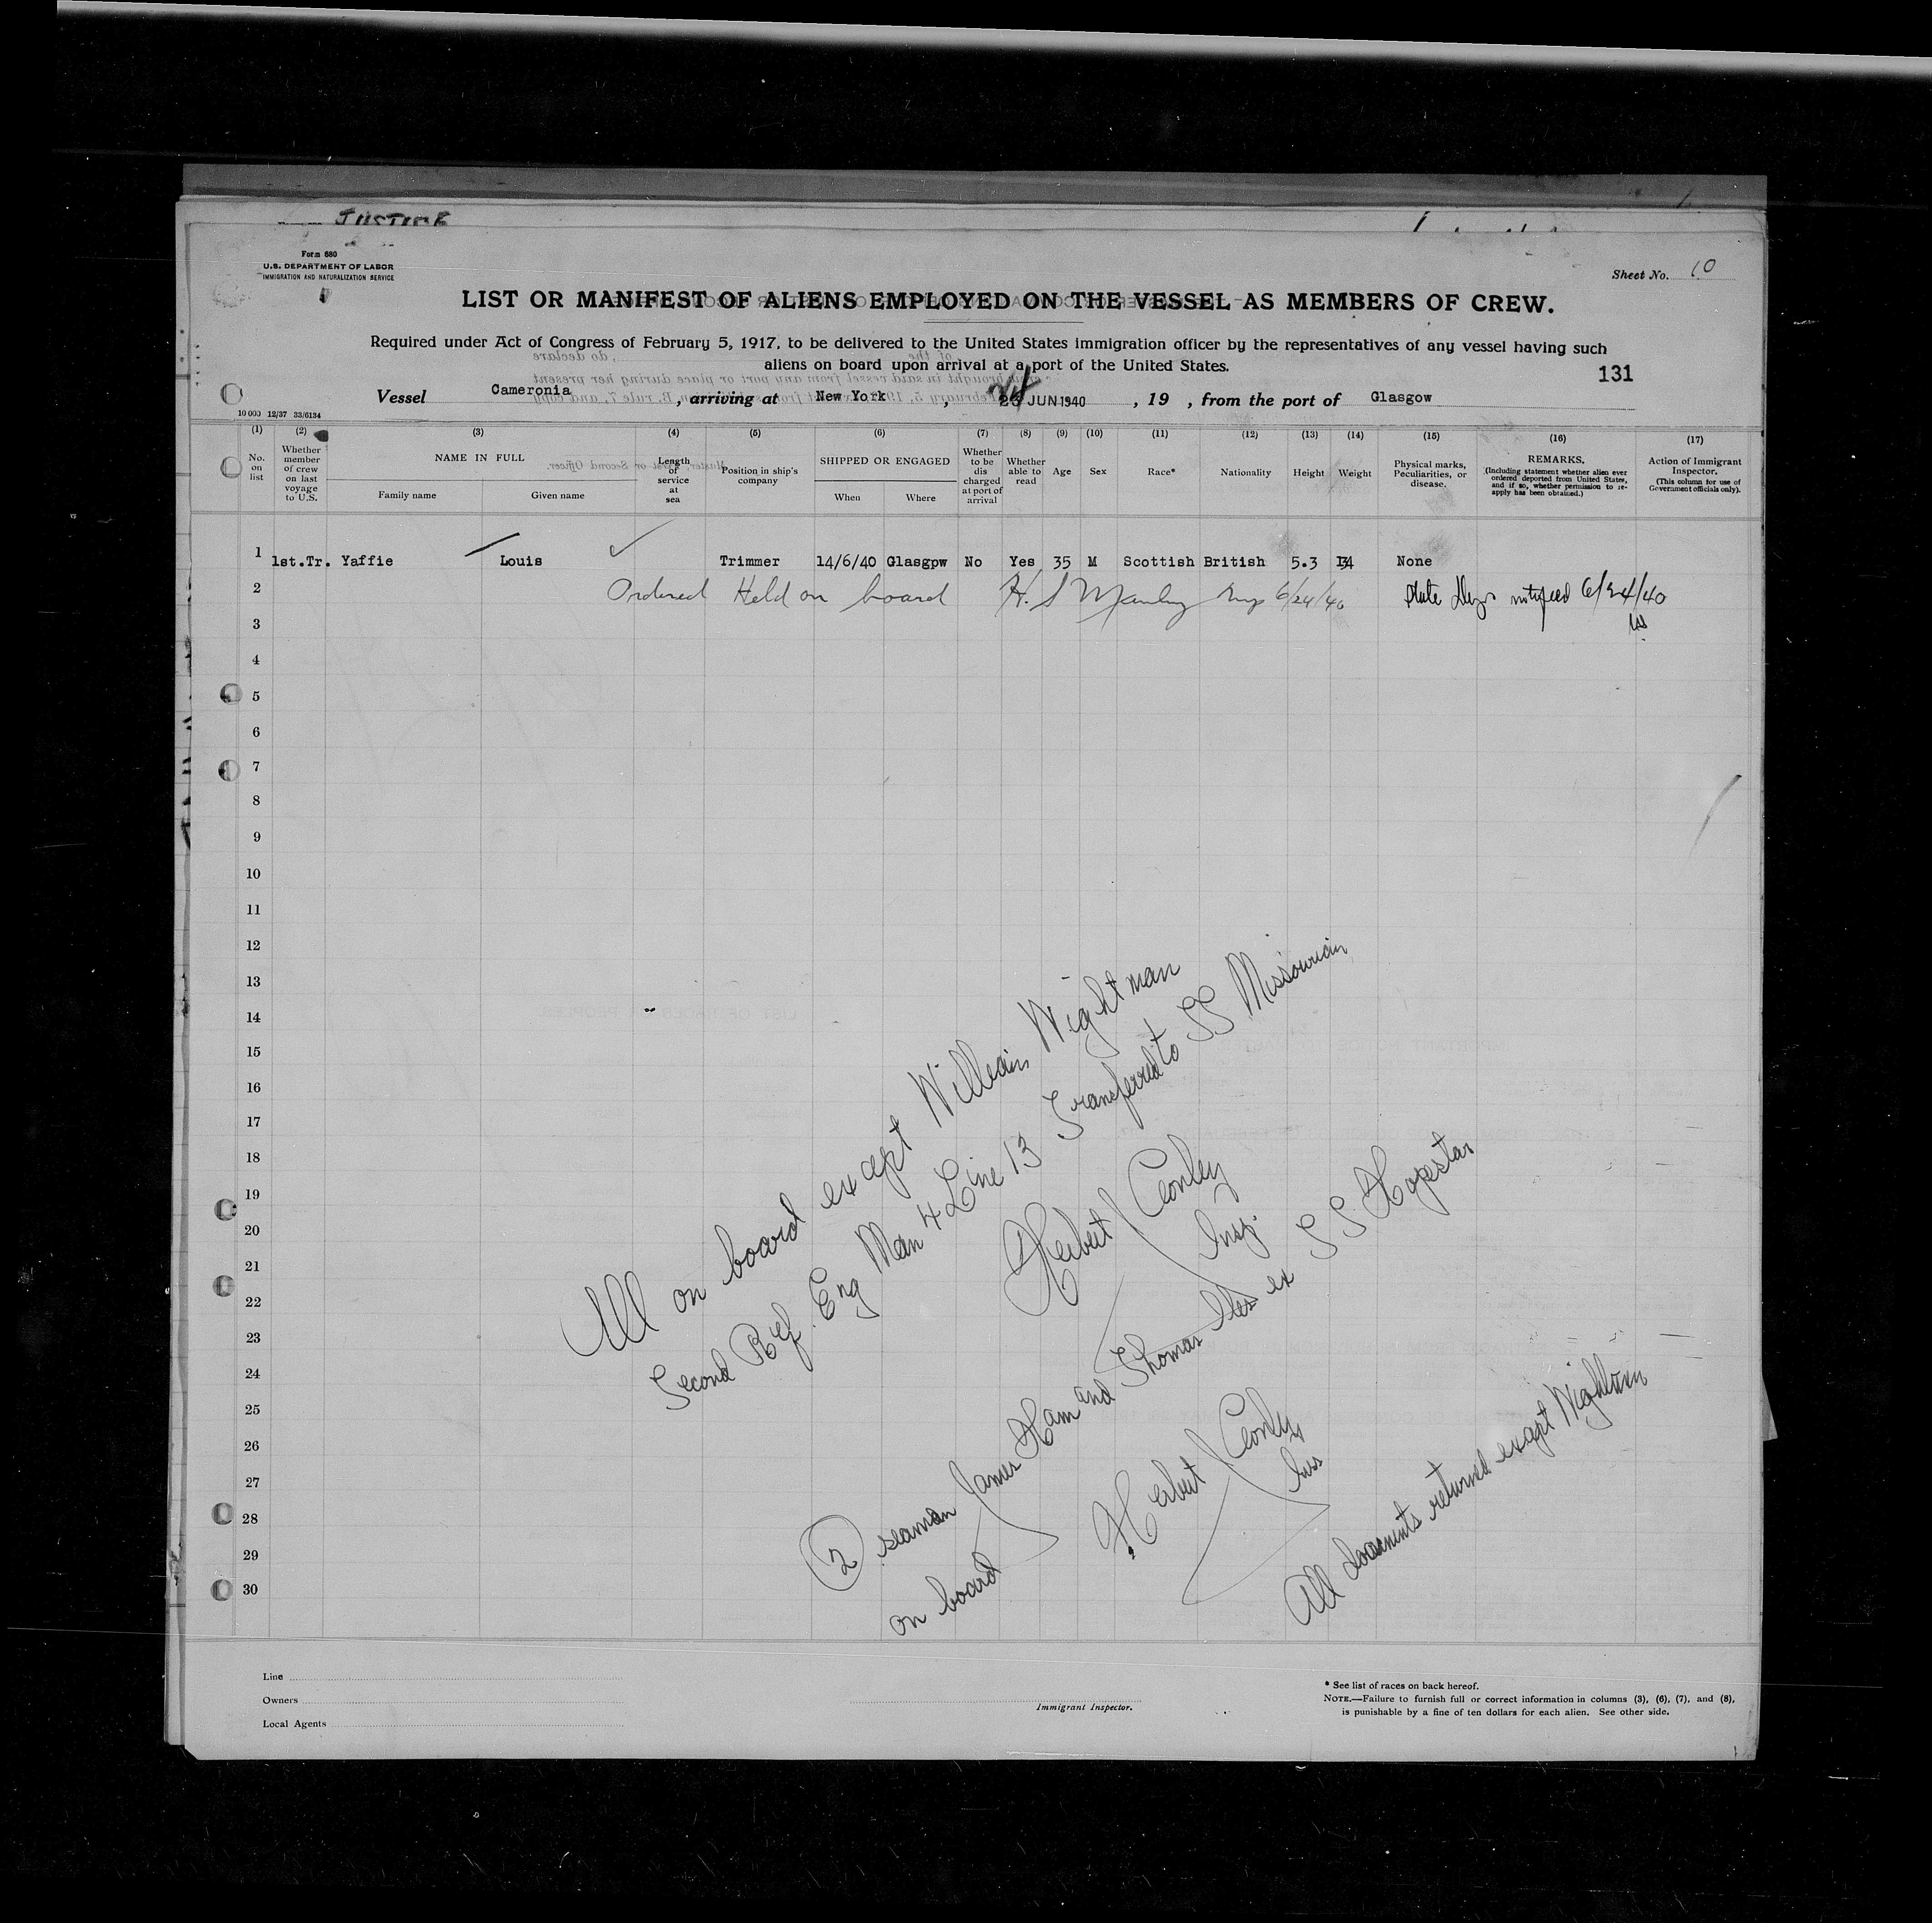 JUSTICE
Form 680
U.S. DEPARTMENT OF LABOR
IMMIGRATION AND NATURALIZATION SERVICE
Sheet No. 10
LIST OR MANIFEST OF ALIENS EMPLOYED ON THE VESSEL AS MEMBERS OF CREW.
Required under Act of Congress of February 5, 1917, to be delivered to the United States immigration officer by the representatives of any vessel having such
aliens on board upon arrival at a port of the United States.
131
Vessel Cameronia , arriving at New York , 24 JUN 1940 , 19 , from the port of Glasgow
10 000 12/37 33/6134
(1) (2) (3) (4) (5) (6) (7) (8) (9) (10) (11) (12) (13) (14) (15) (16) (17)
No. on list
Whether member of crew on last voyage to U.S.
NAME IN FULL
Family name
Given name
Length of service at sea
Position in ship's company
SHIPPED OR ENGAGED
When
Where
Whether to be dis charged at port of arrival
Whether able to read
Age
Sex
Race*
Nationality
Height
Weight
Physical marks, Peculiarities, or disease.
REMARKS,
(Including statement whether alien ever ordered deported from United States, and if so, whether permission to re-apply has been obtained.)
Action of Immigrant Inspector.
(This column for use of Government officials only).
1 1st.Tr. Yaffie Louis Trimmer 14/6/40 Glasgpw No Yes 35 M Scottish British 5.3 134 None
2 Ordered Held on board H. S Manley Insp 6/24/40 notified 6/24/40
3
4
5
6
7
8
9
10
11
12
13
14
15
16
17
18
19
20
21
22
23
24
25
26
27
28
29
30
All on board except William Wightman
Second Ref. Eng Man 4 Line 13 Transferred to SS Missourian
Herbert J Conley
Insp.
2 seaman James Ham and Thomas Iles ex SS Hopestar
on board
Herbert J Conley
Ins
All documents returned except Wightman
Line
Owners
Local Agents
Immigrant Inspector.
* See list of races on back hereof.
NOTE.—Failure to furnish full or correct information in columns (3), (6), (7), and (8),
is punishable by a fine of ten dollars for each alien. See other side.